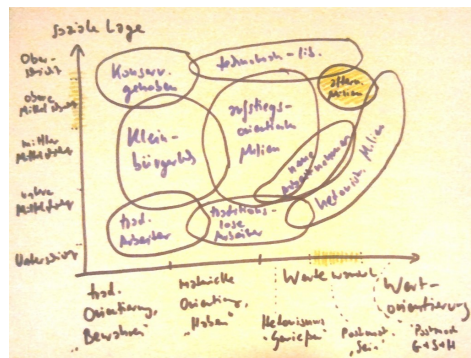 soziale Lage
Ober-
schicht
obere
Mittelschicht
mittlere
Mittelschicht
untere
Mittelschicht
Unterschicht
Konserv.
gehoben
technokrat.-lib.
altern.
Milieu
Klein-
bürgerlich
aufstiegs-
orientiertes
Milieu
neue
Arbeitnehmer
hedonist. Milieu
trad.
Arbeiter
traditions-
lose
Arbeiter
trad.
Orientierung,
"Bewahren"
Materielle
Orientierung,
"Haben"
Hedonismus
"Genießen"
Wertewandel
Postmat.
"Sein"
Wert-
orientierung
Postmod.
G+S+H